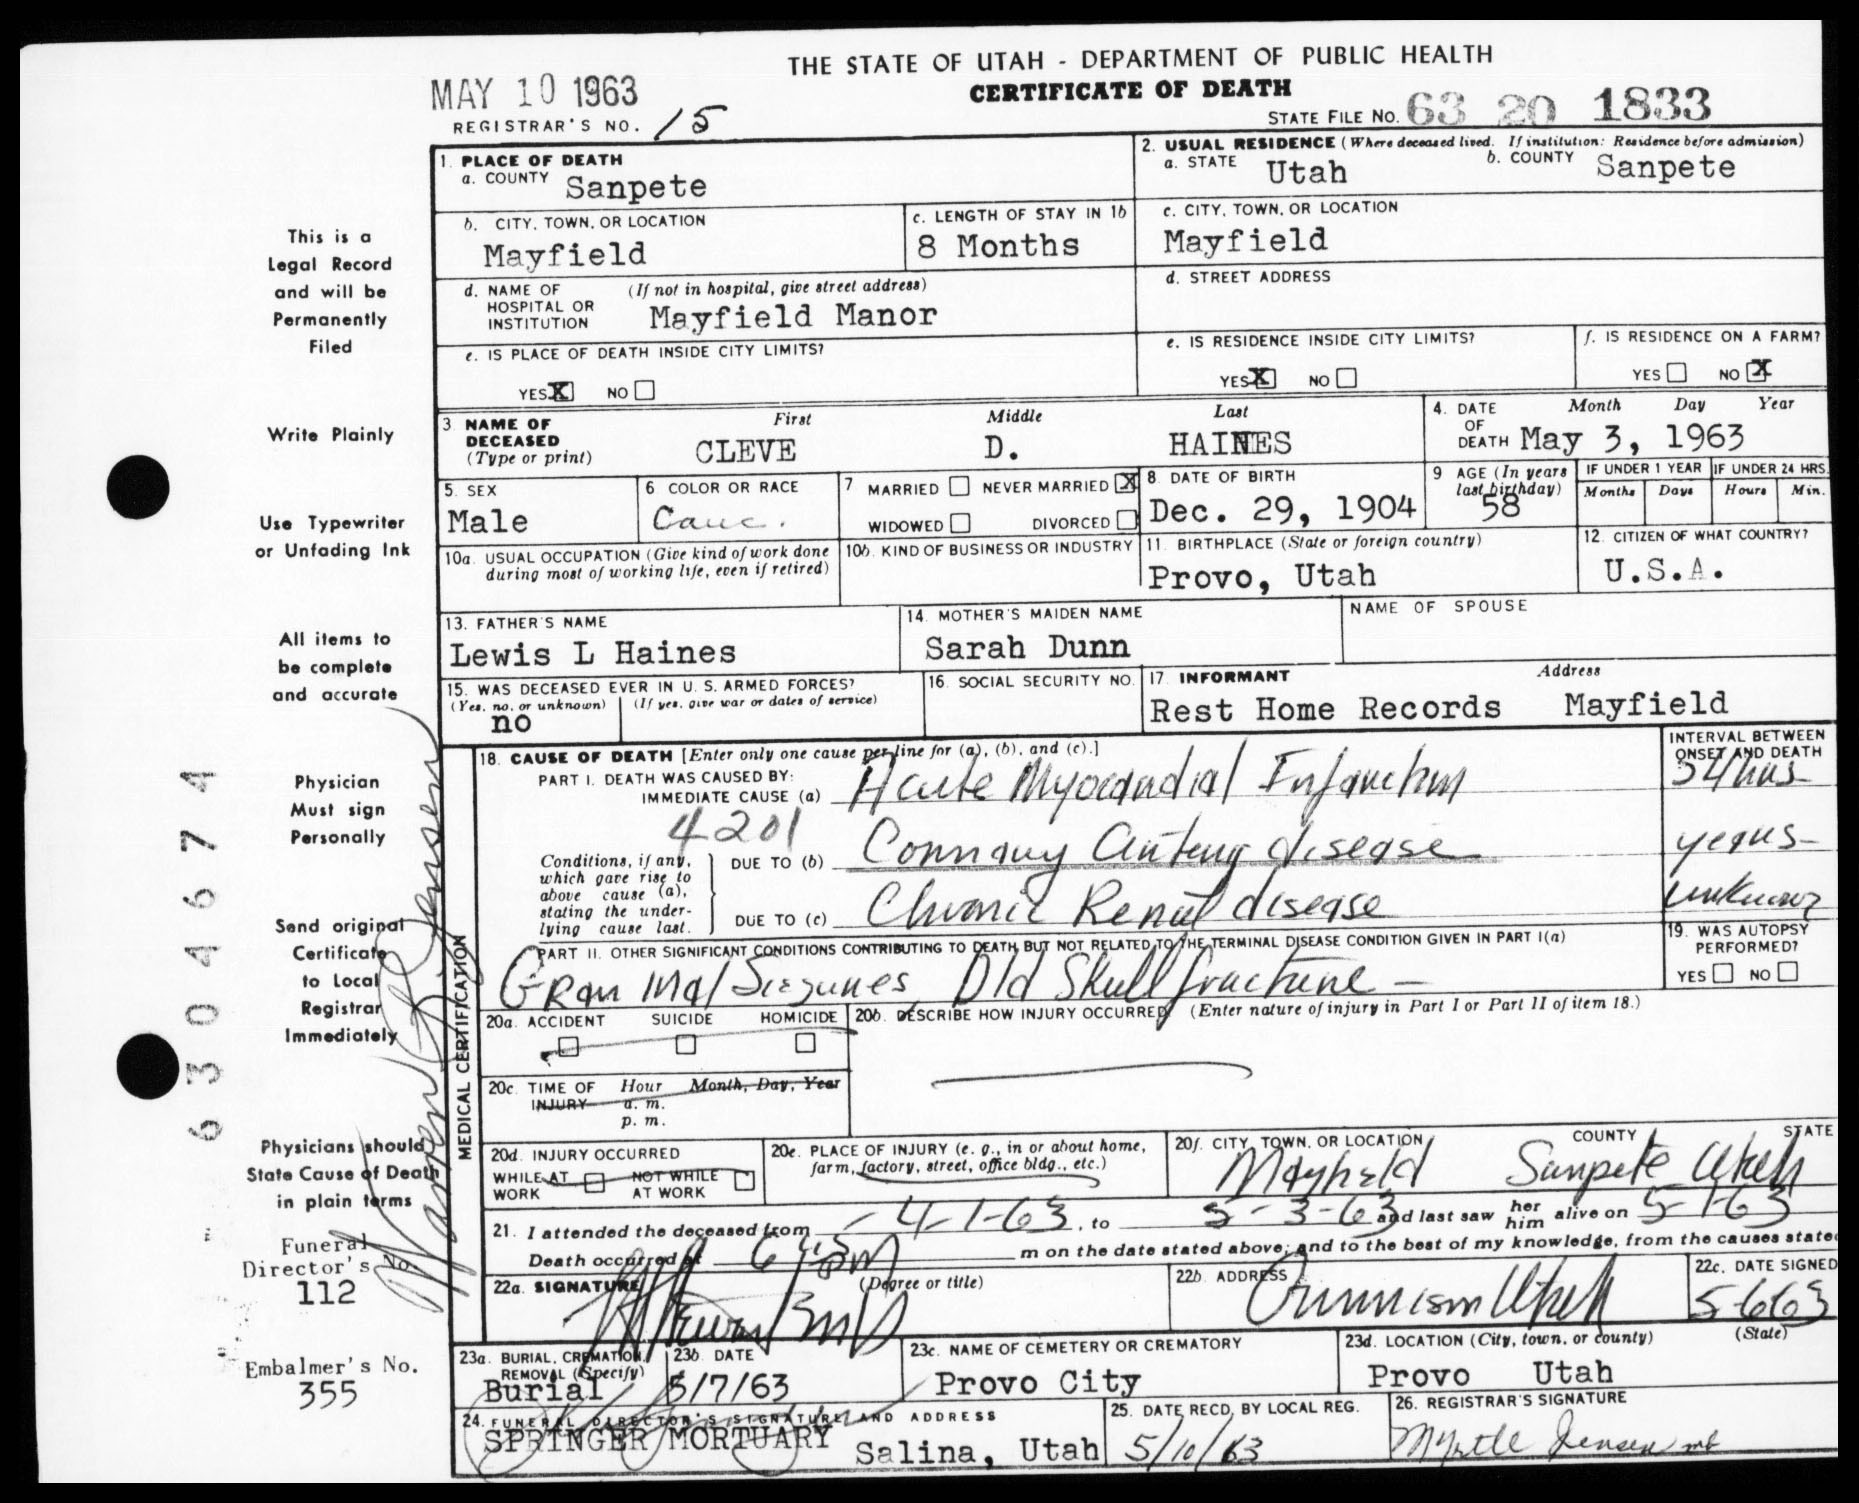 THE STATE OF UTAH - DEPARTMENT OF PUBLIC HEALTH
MAY 10 1963
CERTIFICATE OF DEATH
REGISTRAR'S NO. 15
STATE FILE NO. 63 20 1833
1. PLACE OF DEATH
a. COUNTY Sanpete
2. USUAL RESIDENCE (Where deceased lived. If institution: Residence before admission)
a. STATE Utah b. COUNTY Sanpete
b. CITY, TOWN, OR LOCATION
Mayfield
c. LENGTH OF STAY IN 1b
8 Months
c. CITY, TOWN, OR LOCATION
Mayfield
d. NAME OF HOSPITAL OR INSTITUTION (If not in hospital, give street address)
Mayfield Manor
d. STREET ADDRESS
e. IS PLACE OF DEATH INSIDE CITY LIMITS?
YES X NO
e. IS RESIDENCE INSIDE CITY LIMITS?
YES X NO
f. IS RESIDENCE ON A FARM?
YES NO X
3. NAME OF DECEASED (Type or print)
First Middle Last
CLEVE D. HAINES
4. DATE OF DEATH Month Day Year
May 3, 1963
5. SEX
Male
6 COLOR OR RACE
Cauc.
7 MARRIED NEVER MARRIED X
WIDOWED DIVORCED
8. DATE OF BIRTH
Dec. 29, 1904
9 AGE (In years last birthday)
58
IF UNDER 1 YEAR
Months Days
IF UNDER 24 HRS.
Hours Min.
10a. USUAL OCCUPATION (Give kind of work done during most of working life, even if retired)
10b. KIND OF BUSINESS OR INDUSTRY
11. BIRTHPLACE (State or foreign country)
Provo, Utah
12. CITIZEN OF WHAT COUNTRY?
U.S.A.
13. FATHER'S NAME
Lewis L Haines
14. MOTHER'S MAIDEN NAME
Sarah Dunn
NAME OF SPOUSE
15. WAS DECEASED EVER IN U. S. ARMED FORCES?
(Yes, no, or unknown) (If yes, give war or dates of service)
no
16. SOCIAL SECURITY NO.
17. INFORMANT Address
Rest Home Records Mayfield
MEDICAL CERTIFICATION
18. CAUSE OF DEATH [Enter only one cause per line for (a), (b), and (c).]
INTERVAL BETWEEN ONSET AND DEATH
PART I. DEATH WAS CAUSED BY:
IMMEDIATE CAUSE (a) Acute Myocardial Infarction
hrs
4201
Conditions, if any, which gave rise to above cause (a), stating the underlying cause last.
DUE TO (b) Coronary Artery disease
years
DUE TO (c) Chronic Renal disease
unknown
PART II. OTHER SIGNIFICANT CONDITIONS CONTRIBUTING TO DEATH BUT NOT RELATED TO THE TERMINAL DISEASE CONDITION GIVEN IN PART I(a)
Gran Mal Siezures, Old Skull fracture -
19. WAS AUTOPSY PERFORMED?
YES NO
20a. ACCIDENT SUICIDE HOMICIDE
20b. DESCRIBE HOW INJURY OCCURRED (Enter nature of injury in Part I or Part II of item 18.)
20c. TIME OF INJURY Hour Month, Day, Year
a. m.
p. m.
20d. INJURY OCCURRED
WHILE AT WORK NOT WHILE AT WORK
20e. PLACE OF INJURY (e. g., in or about home, farm, factory, street, office bldg., etc.)
20f. CITY, TOWN, OR LOCATION COUNTY STATE
Mayfield Sanpete Utah
21. I attended the deceased from 4-1-63, to 5-3-63 and last saw her him alive on 5-1-63
Death occurred at 6 45 PM m on the date stated above; and to the best of my knowledge, from the causes state
22a. SIGNATURE (Degree or title)
MD
22b. ADDRESS
Gunnison Utah
22c. DATE SIGNED
5-6-63
23a. BURIAL, CREMATION, REMOVAL (Specify)
Burial
23b. DATE
5/7/63
23c. NAME OF CEMETERY OR CREMATORY
Provo City
23d. LOCATION (City, town, or county) (State)
Provo Utah
24. FUNERAL DIRECTOR'S SIGNATURE AND ADDRESS
SPRINGER MORTUARY Salina, Utah
25. DATE RECD. BY LOCAL REG.
5/10/63
26. REGISTRAR'S SIGNATURE
Myrtle Jensen
This is a
Legal Record
and will be
Permanently
Filed
Write Plainly
Use Typewriter
or Unfading Ink
All items to
be complete
and accurate
Physician
Must sign
Personally
Send original
Certificate
to Local
Registrar
Immediately
Physicians should
State Cause of Death
in plain terms
Funeral
Director's No.
112
Embalmer's No.
355
6304674
Jensen